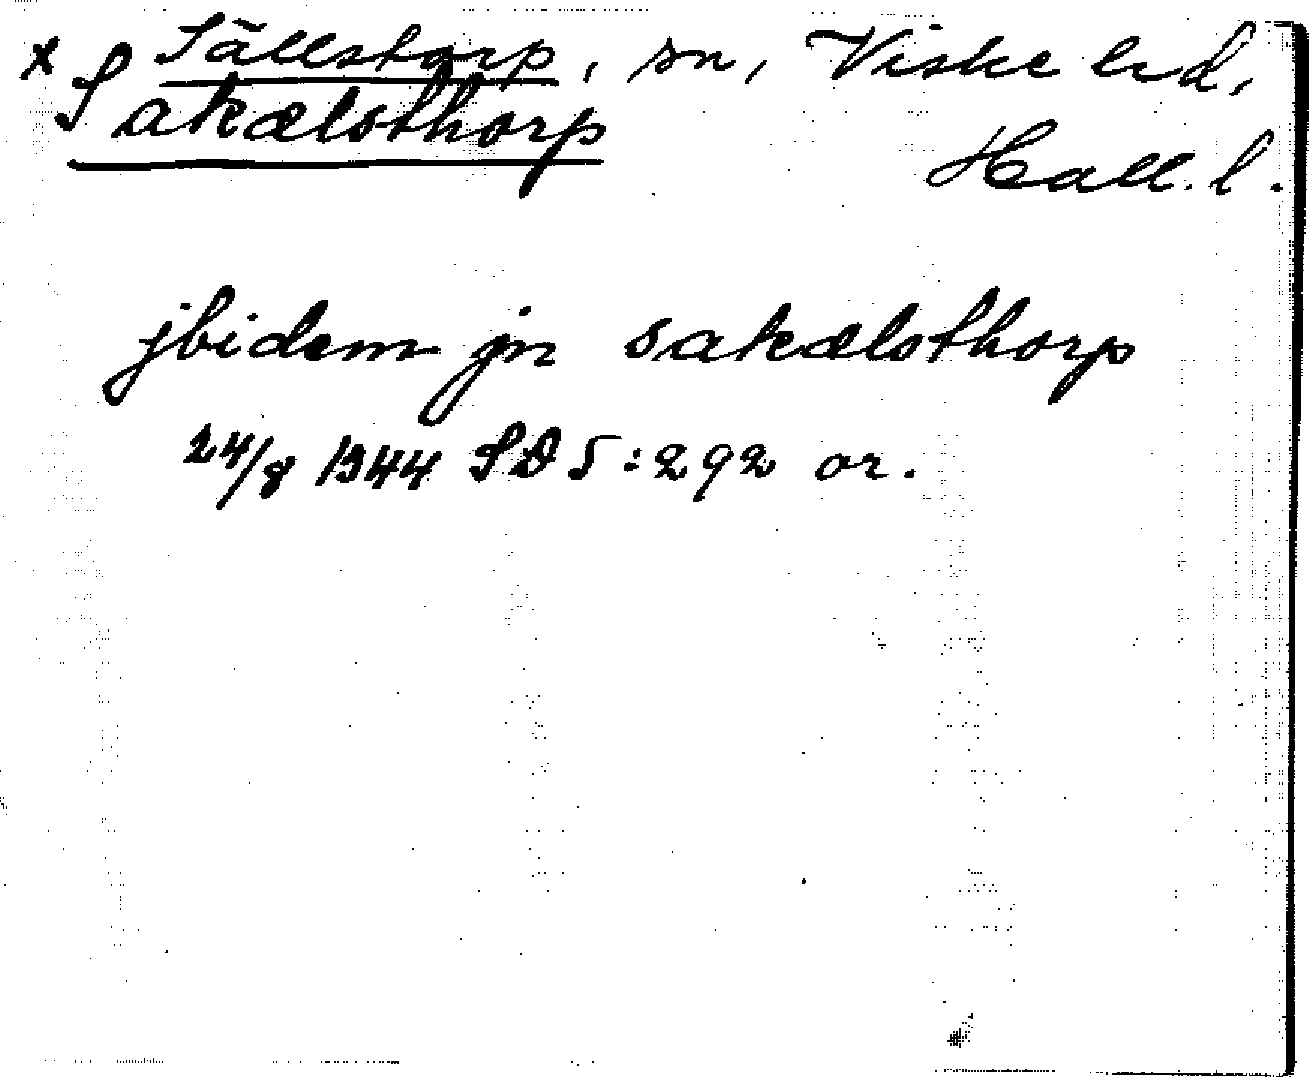 x Sällstorp, sn, Viske hd,
Sakælsthorp
Hall. l.
jbidem jn sakælsthorp
24/8 1344 SD 5:292 or.